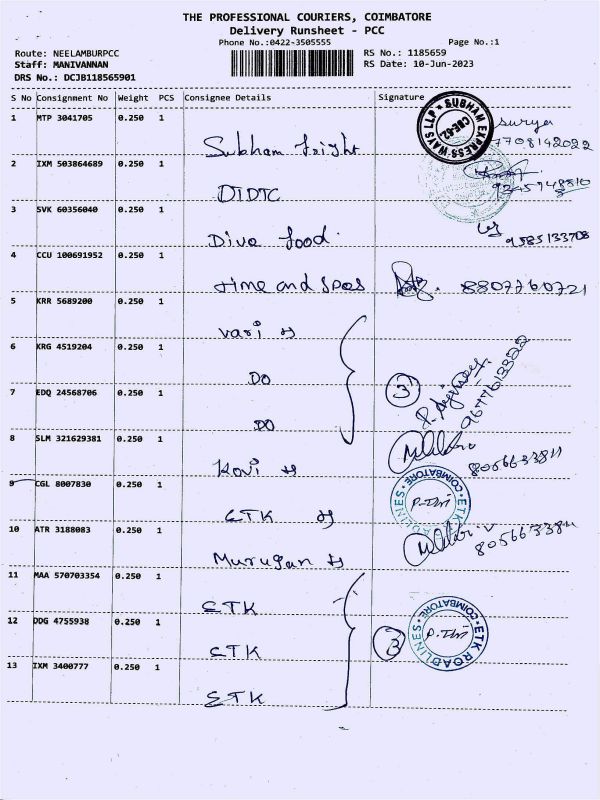 THE PROFESSIONAL COURIERS, COIMBATORE
Delivery Runsheet - PCC
Phone No.:0422-3505555 Page No.:1
Route: NEELAMBURPCC RS No.: 1185659
Staff: MANIVANNAN RS Date: 10-Jun-2023
DRS No.: DCJB118565901
S No Consignment No Weight PCS Consignee Details Signature
1 MTP 3041705 0.250 1
SUBHAM EXPRESS WAYS LLP
CBE-62
Surya
7708142022
Subham
2 IXM 503864689 0.250 1
DTDTC
3 SVK 60356040 0.250 1
9585133708
Diva food
4 CCU 100691952 0.250 1
time and spas 8807760721
5 KRR 5689200 0.250 1
vari
6 KRG 4519204 0.250 1
DO
7 EDQ 24568706 0.250 1
3
9677613822
DO
8 SLM 321629381 0.250 1
8056633811
Kovi
9 CGL 8007830 0.250 1
ETK ROADLINES COIMBATORE
ETK
10 ATR 3188083 0.250 1
8056633811
Murugan
11 MAA 570703354 0.250 1
ETK
12 DDG 4755938 0.250 1
3
ETK ROADLINES COIMBATORE
ETK
13 IXM 3400777 0.250 1
ETK